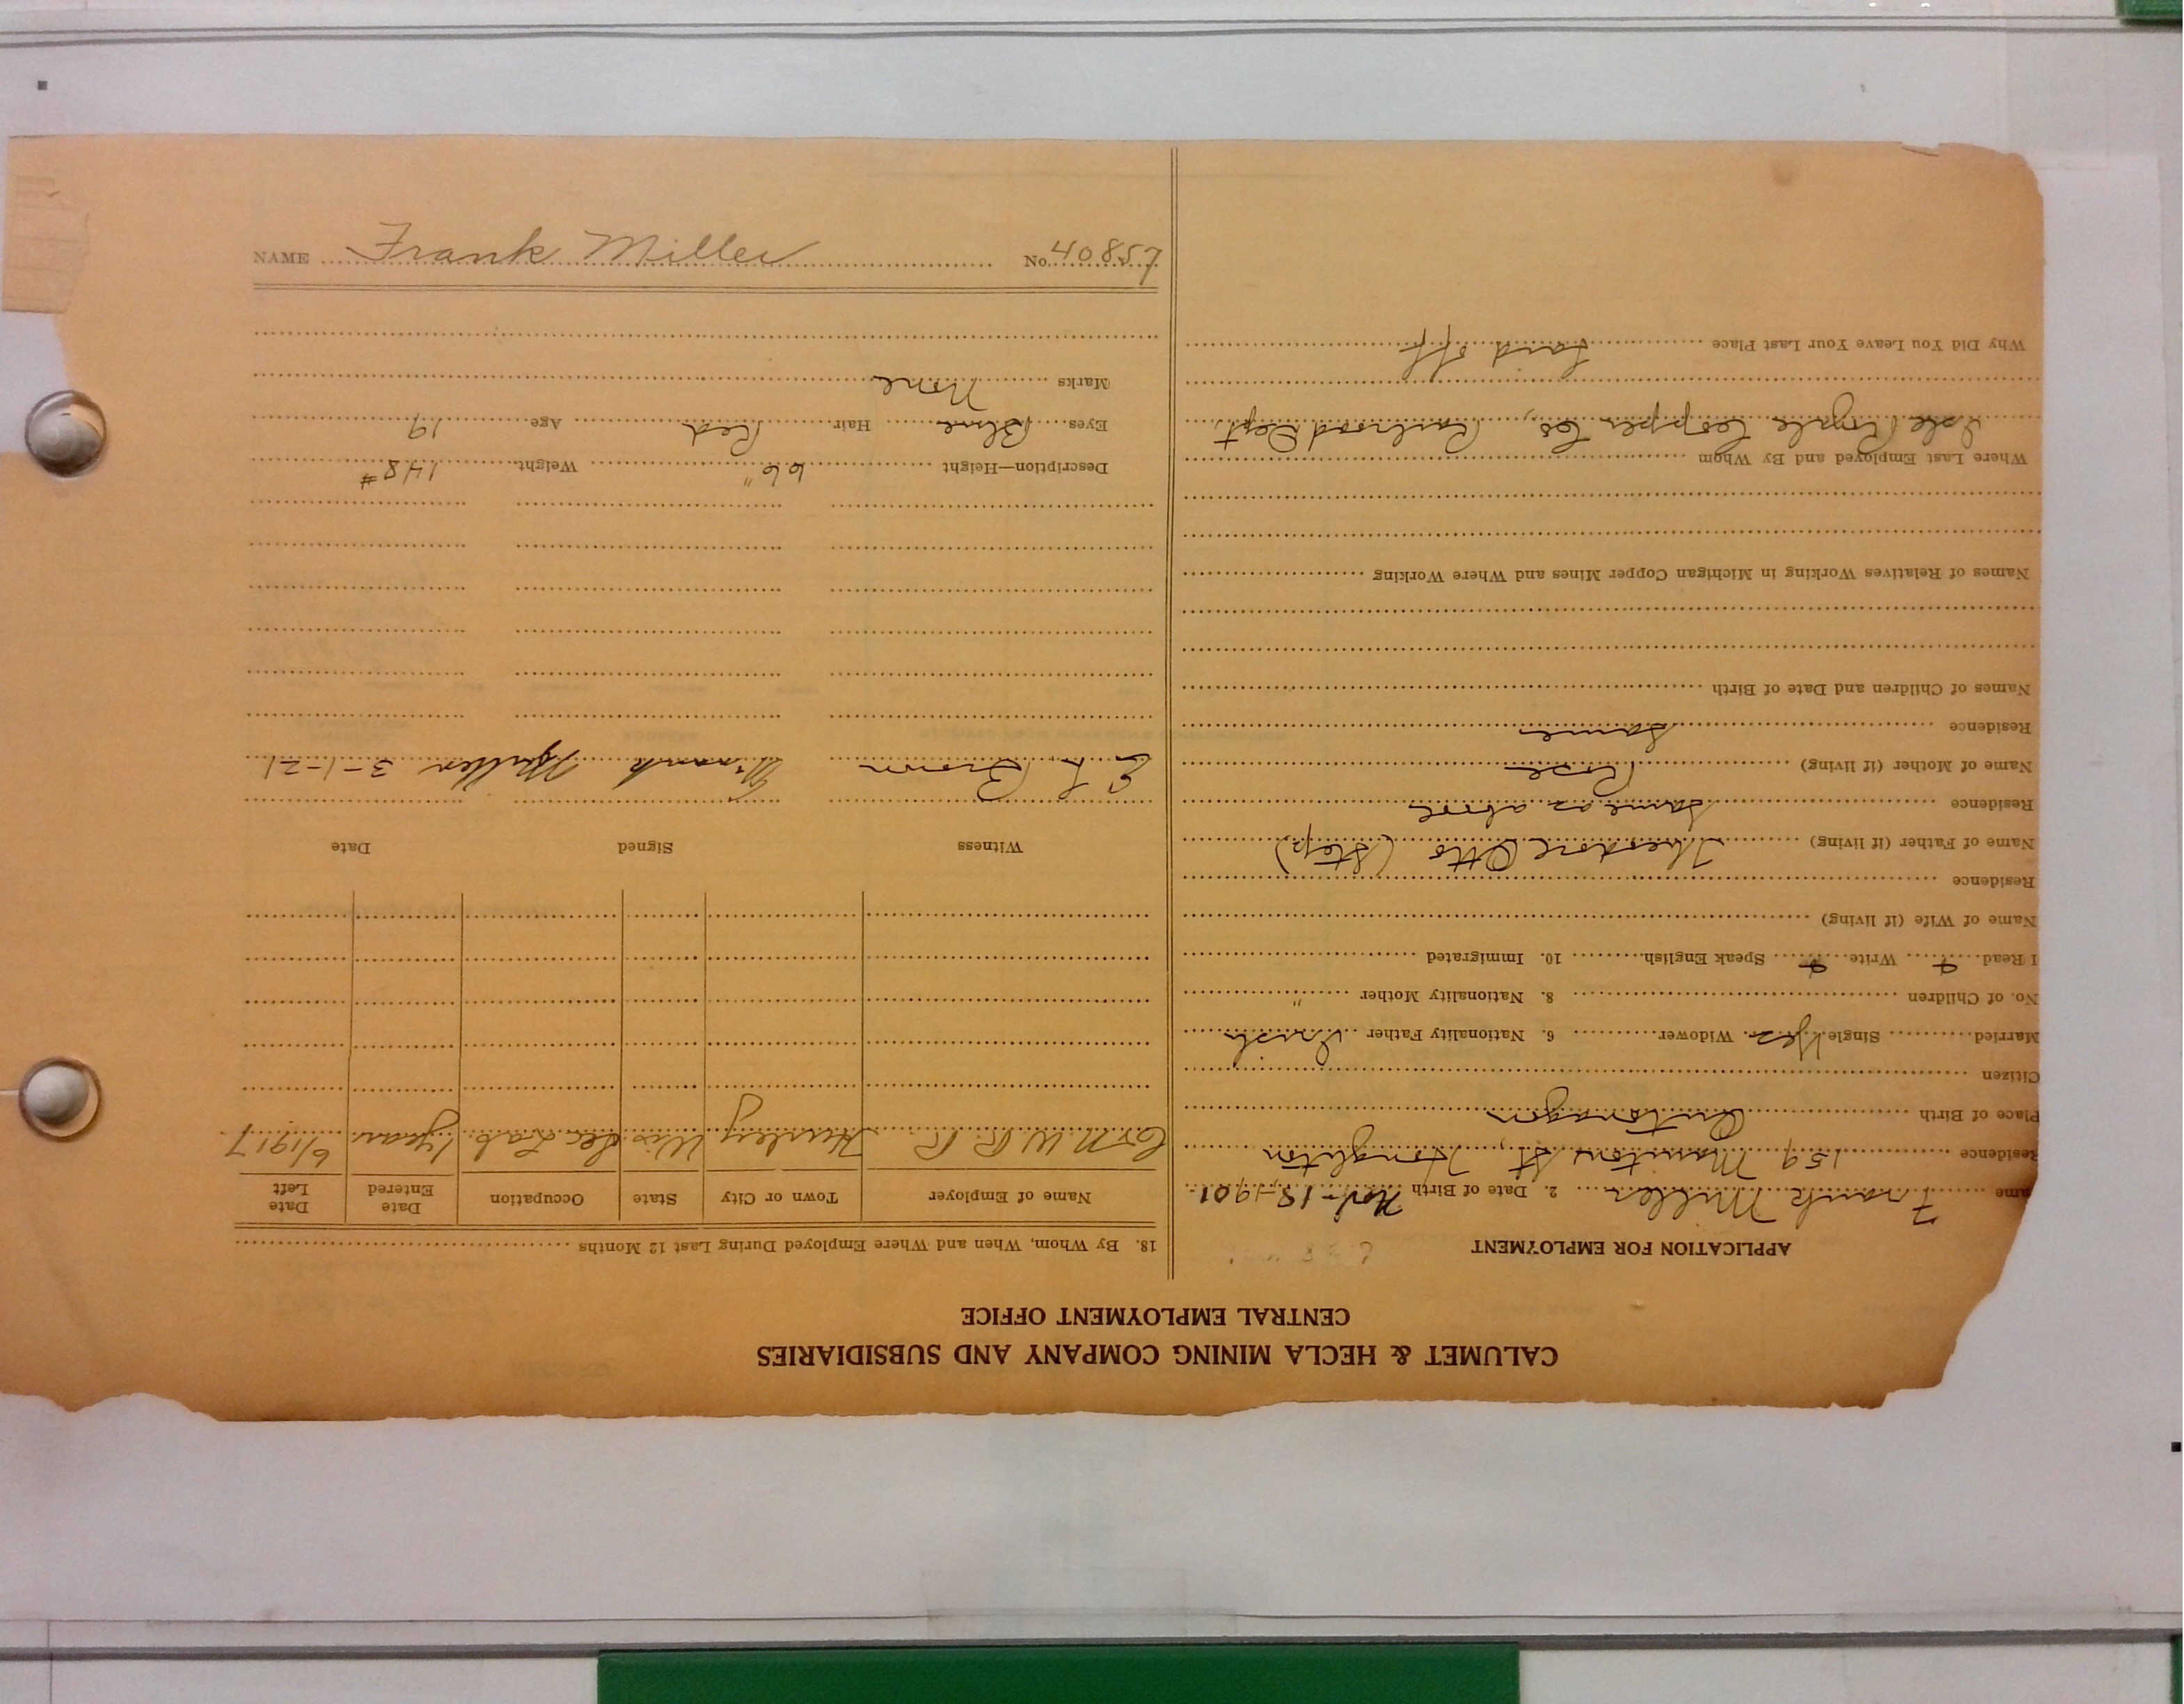 CALUMET & HECLA MINING COMPANY AND SUBSIDIARIES
CENTRAL EMPLOYMENT OFFICE
APPLICATION FOR EMPLOYMENT
ame Frank Miller 2. Date of Birth Nov-18-1901
Residence 159 Manitou St, Houghton
Place of Birth Ontonagon
Citizen
Married Single Yes Widower 6. Nationality Father Irish
No. of Children 8. Nationality Mother "
I Read Write Speak English 10. Immigrated
Name of Wife (if living)
Residence
Name of Father (if living) Theodore Otto (Step)
Residence Same as above
Name of Mother (if living) Rose
Residence Same
Names of Children and Date of Birth
Names of Relatives Working in Michigan Copper Mines and Where Working
Where Last Employed and By Whom
Isle Royale Copper Co., Railroad Dept,
Why Did You Leave Your Last Place Laid off
18. By Whom, When and Where Employed During Last 12 Months
Name of Employer Town or City State Occupation Date Entered Date Left
C & N. W R. R Hurley Wis Sec. Lab. 1 year 6/1917
Witness Signed Date
Brown Frank Miller 3-1-21
Description—Height 66" Weight 148#
Eyes Blue Hair Red Age 19
Marks None
NAME Frank Miller No. 40857